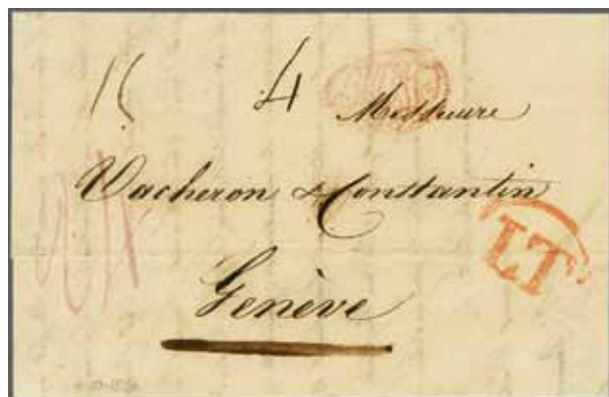 4 Messieurs
Vacheron & Constantin
LT
Genève